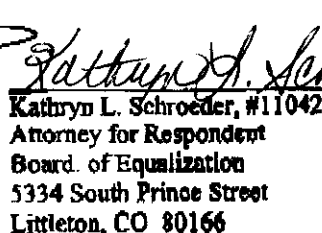 Kathryn L. Sc
Kathryn L. Schroeder, #11042
Attorney for Respondent
Board. of Equalization
5334 South Prince Street
Littleton, CO 80166